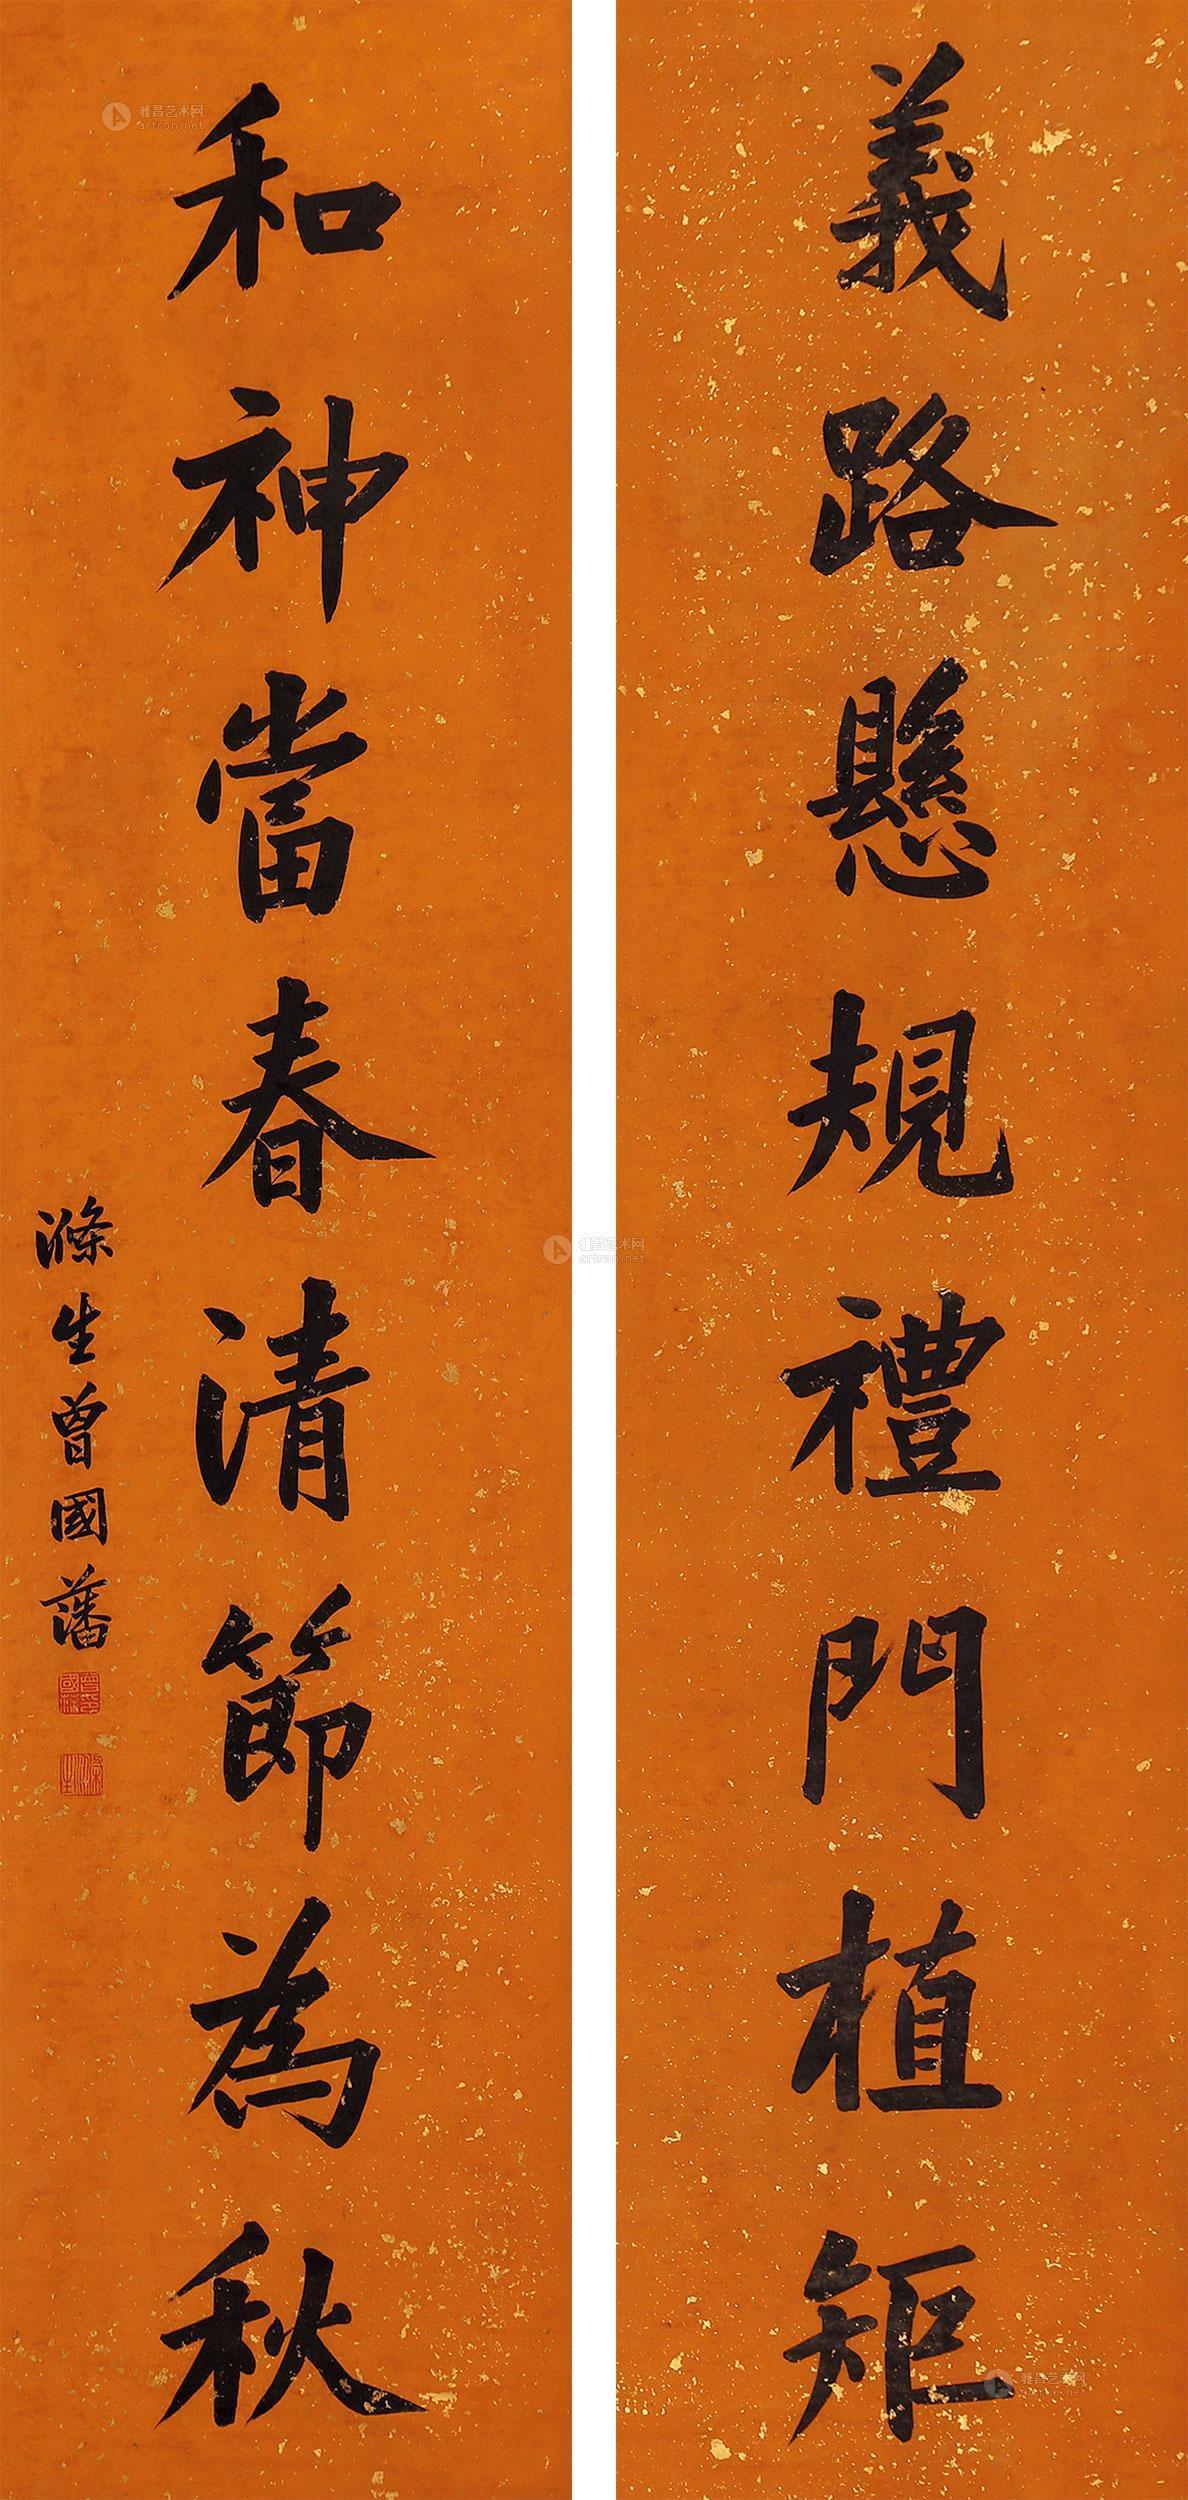 義路懸規禮門植矩
和神當春清節為秋
滌生曾國藩
曾國藩印
滌生
雅昌艺术网
artron.net
雅昌艺术网
artron.net
雅昌艺术网
artron.net